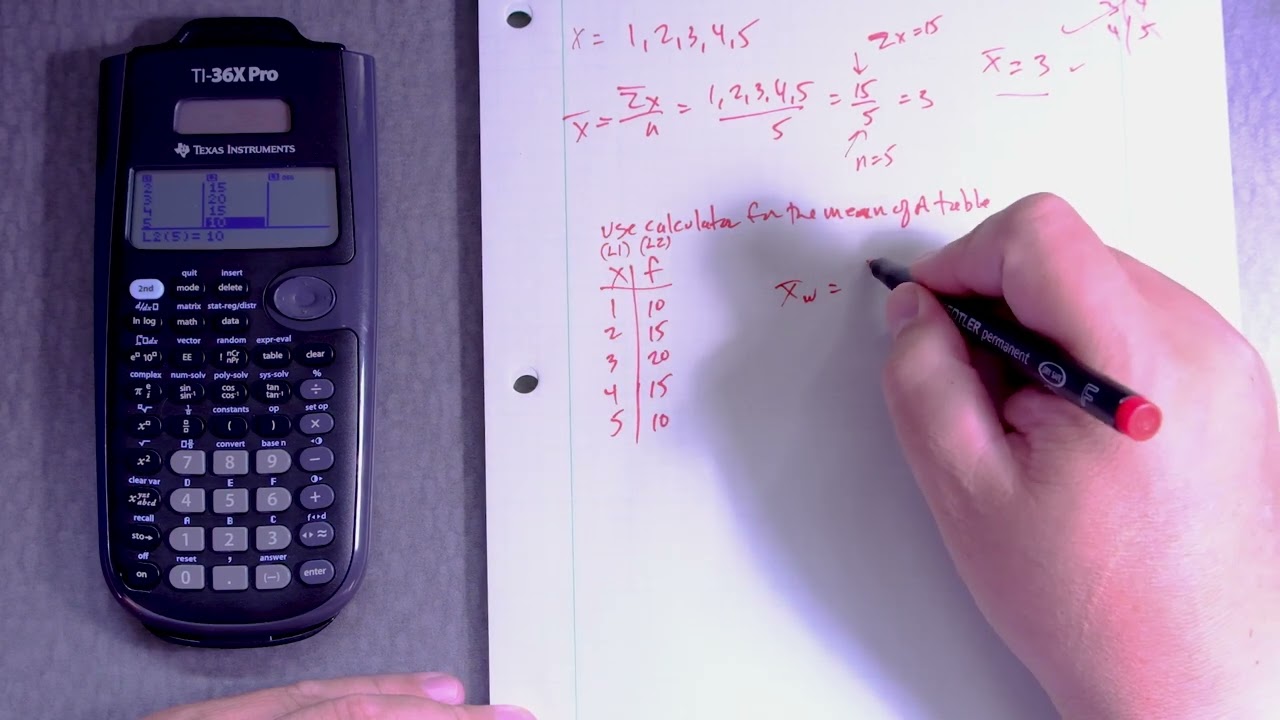 TI-36X Pro
TEXAS INSTRUMENTS
L1 L2 L3
2 15
3 20
4 15
5 10
L2(5)=10
quit insert
2nd mode delete
matrix stat-reg/distr
ln log math data
vector random expr-eval
EE ! nCr nPr table clear
complex num-solv poly-solv sys-solv %
π e i sin sin⁻¹ cos cos⁻¹ tan tan⁻¹ ÷
constants op set op
( ) ×
√ convert base n
x² 7 8 9 −
clear var D E F
x yzt abcd 4 5 6 +
recall A B C f◂▸d
sto→ 1 2 3 ◂▸≈
off reset , answer
on 0 . (−) enter
X = 1, 2, 3, 4, 5
Σx=15
x̄ = Σx/n = 1, 2, 3, 4, 5/5 = 15/5 = 3
n=5
x̄ = 3 ✓
4 | 5
use calculator for the mean of A table
(L1) (L2)
X | f
1 | 10
2 | 15
3 | 20
4 | 15
5 | 10
x̄w =
STAEDTLER permanent
F